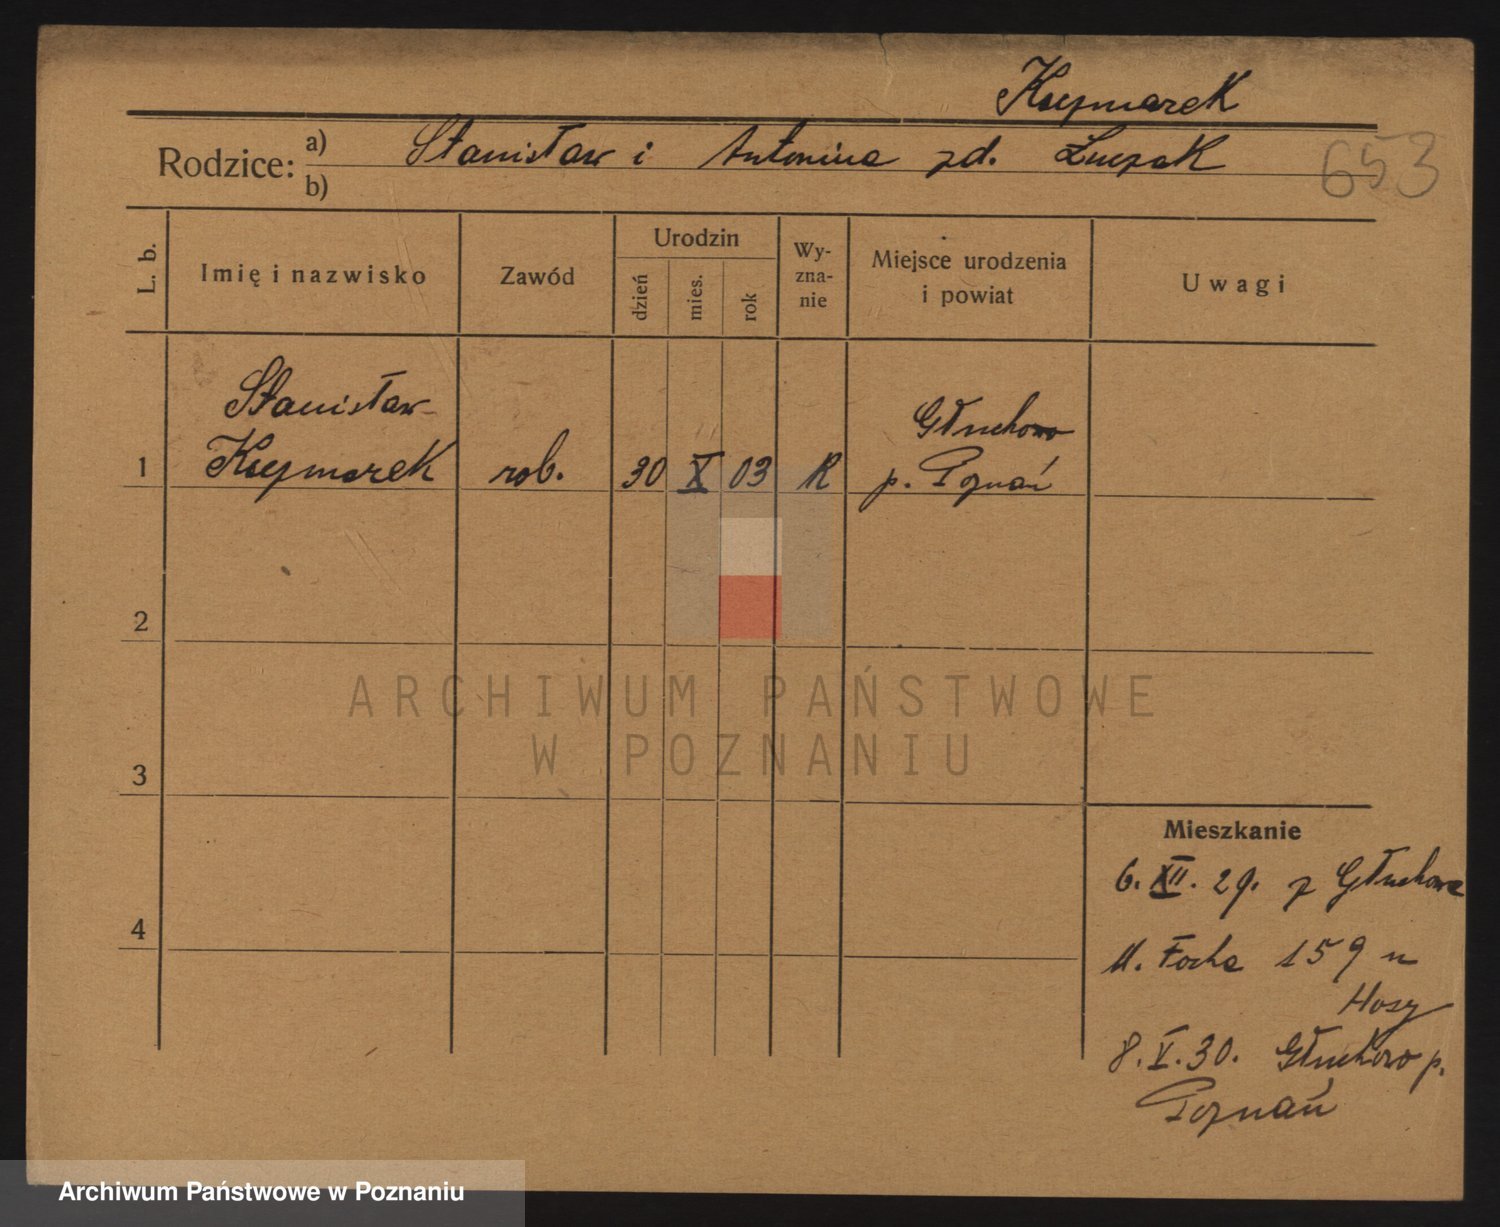 Kaczmarek
Rodzice: a) Stanisław i Antonina zd. Łuczak
b)
653
L. b.
Imię i nazwisko
Zawód
Urodzin
dzień
mies.
rok
Wy-
zna-
nie
Miejsce urodzenia
i powiat
Uwagi
Stanisław
1 Kaczmarek rob. 30 X 03 R
Głuchowo
p. Poznań
2
3
4
ARCHIWUM PAŃSTWOWE
W POZNANIU
Mieszkanie
6. XII. 29. z Głuchowa
M. Focha 159 u
8. V. 30. Głuchowo p.
Poznań
Archiwum Państwowe w Poznaniu